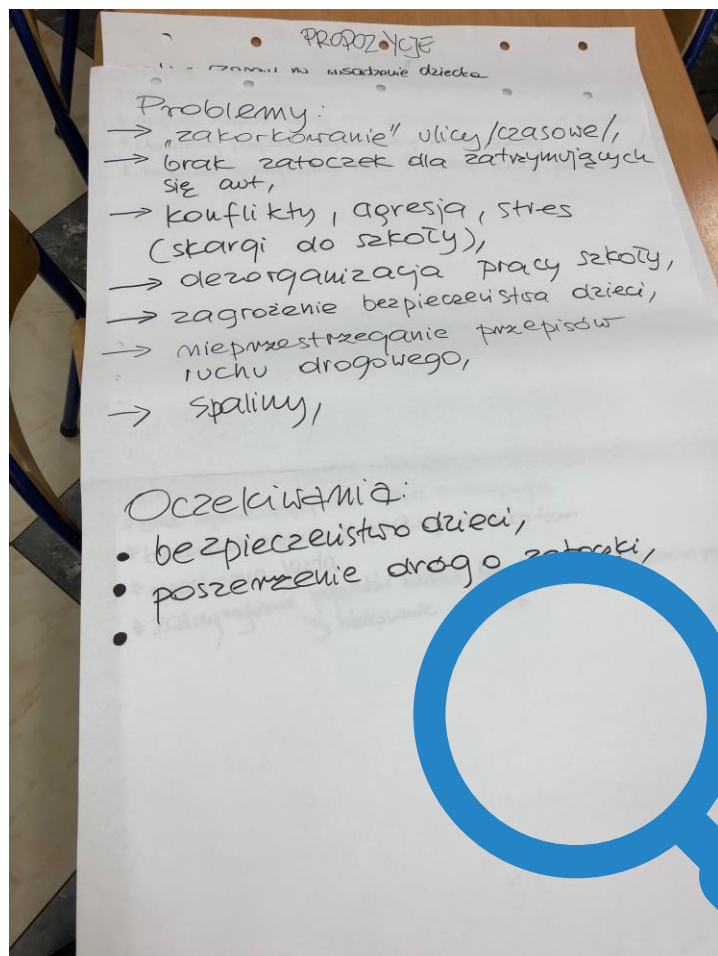 PROPOZYCJE
na wsadzanie dziecka
Problemy:
→ „zakorkowanie" ulicy /czasowe/,
→ brak zatoczek dla zatrzymujących
się aut,
→ konflikty, agresja, stres
(skargi do szkoły),
→ dezorganizacja pracy szkoły,
→ zagrożenie bezpieczeństwa dzieci,
→ nieprzestrzeganie przepisów
ruchu drogowego,
→ spaliny,
Oczekiwania:
• bezpieczeństwo dzieci,
• poszerzenie drogo zatoczki,
•